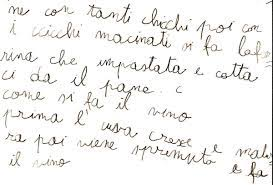 ne con tanti chicchi poi con
i ccicchi macinati si fa lafa
rina che impastata e cotta
ci da il pane. c
come si fa il vino
prima l'uva cresce e matu
ra poi viene spremuta e fa
il vino